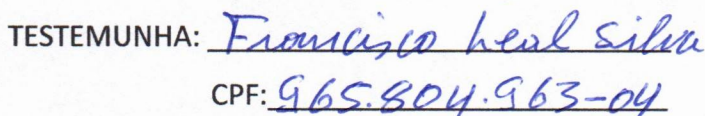 TESTEMUNHA: Francisco Leal Silva
CPF: 965.804.963-04